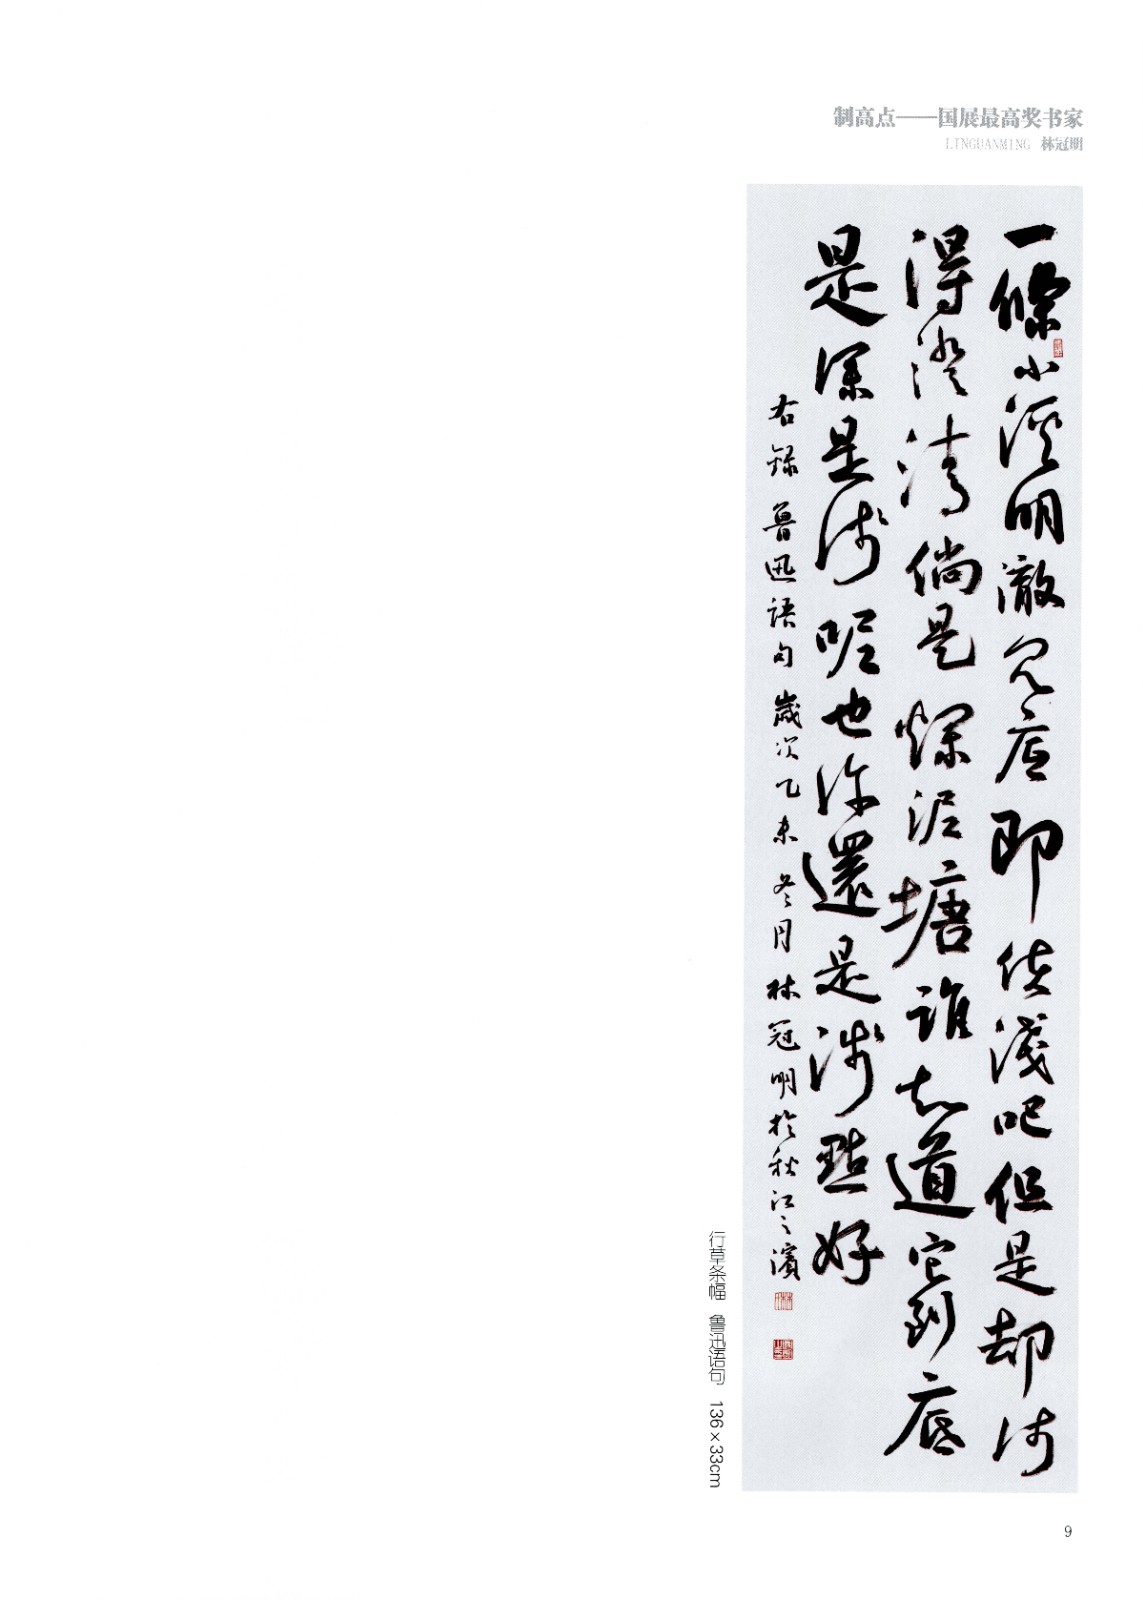 制高点——国展最高奖书家
LINGUANMING 林冠明
一條小溪明澈見底即使淺吧但是却淺
得澄清倘是爛泥塘誰知道它到底
是深是淺呢也許還是淺點好
右録魯迅語句歲次乙未冬月林冠明於秋江之濱
行草条幅 鲁迅语句 136×33cm
9